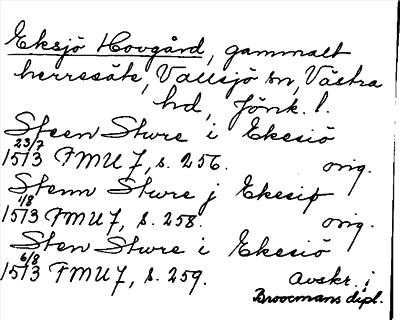 Eksjö Hovgård, gammalt
herresäte, Vallsjö sn, Västra
hd, Jönk. l.
Steen Sture i Ekesiö
23/7
1513 FMU 7, s. 256. orig.
Stenn Sture j Ekesiø
1/8
1513 FMU 7, s. 258. orig.
Sten Sture i Ekesiö
6/8
1513 FMU 7, s. 259. Avskr. i
Broocmans dipl.